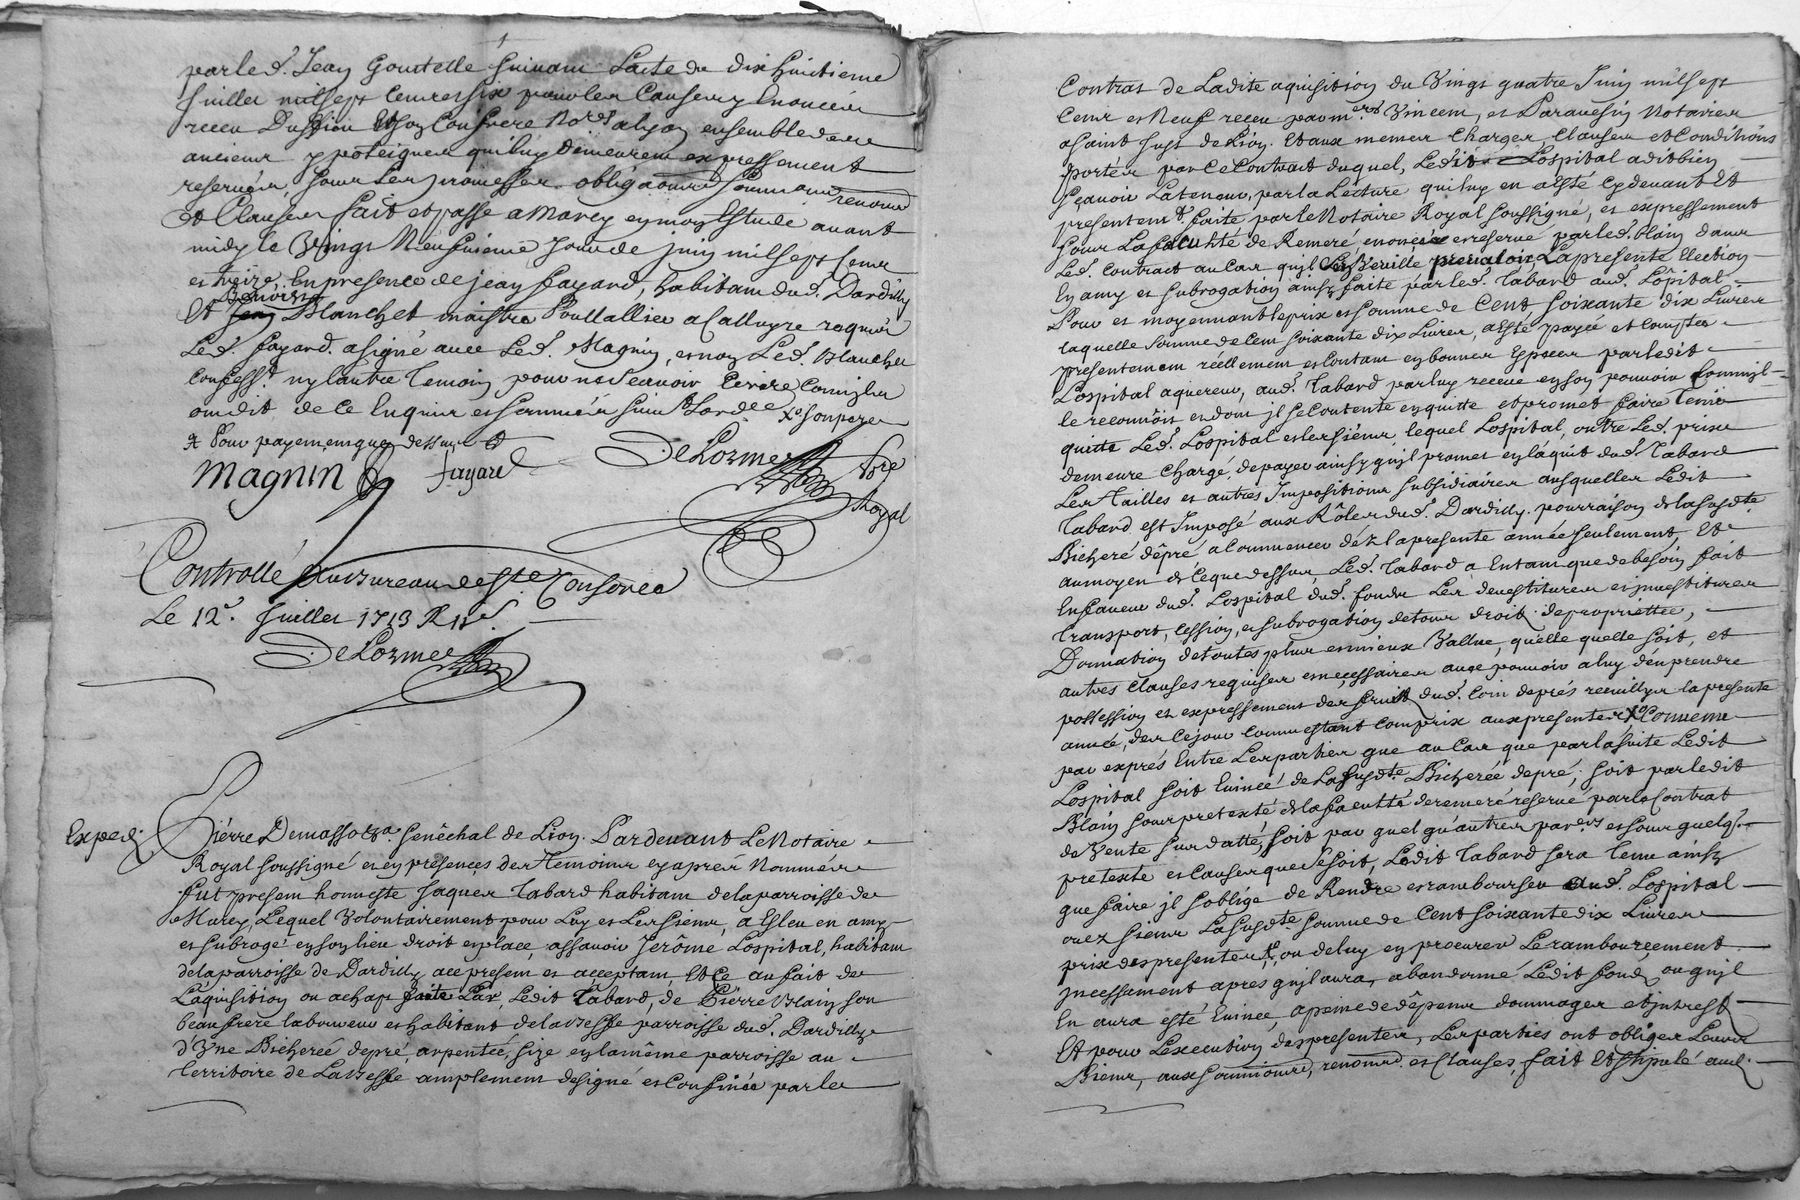 par led. Jean Goutelle suivant Lacte du dix huictieme
Juillet mil sept cent et six pour les causes y Enoncées
receu Dussieu Et son Confrere No.res a lyon ensemble de
anciens ypoteiques qui luy demeurent expressement
reservées, sous les promesses obligaōns soumons renons
et Clauses fait et passé a Marcy en mon Estude avant
midy le Vingt Neufvieme jour de juin mil sept Cent
et treize, En presence de jean fayard, habitant dud. Dardilly
Benoist
Et Jean Blanchet maistre Poullallier a Calluyre requis
Led. fayard a signé avec Led. Magnin, et non Led. Blanchet
Confess.t ny lautre Temoin pour ne scavoir Ecrire Comme ils
ont dit de Ce Enquis et sommés suiv.t Lord.ce x son pere
x Pour payement que dessus
magnin fayard DeLorme No.re Royal
Controllé au bureau de St. Consorce
Le 12.e Juillet 1713 R 11 s.
DeLorme
Exped.
Pierre Demassoz.a Senêchal de Lion. Pardevant Le Notaire
Royal soussigné et en présences des Temoins cy apres Nommés
fut present honneste Jaques Tabard habitant de la parroisse de
Marcy, Lequel Volontairement pour Luy et Les siens, a Esleu en amy
et subrogé en son lieu droit en place, assavoir Jerôme Lospital, habitant
de la parroisse de Dardilly ace present et acceptant, Et Ce au fait de
Laquisition ou achapt faite Par, Ledit Tabard, de Pierre Blain son
beaufrere laboureur et habitant de la besse parroisse dud. Dardilly
d'Une Bicherée de pré arpentée, size en la même parroisse au
Territoire de La besse amplement designé et Confinée par le
Contrat de Ladite aquisition du Vingt quatre Juin mil sept
Cent et Neuf receu par m.ers Vincent, et Notaires
a Saint Just de Lion. Et aux memes Charges, Clauses et Conditions
portées par ce Contrat duquel, Ledit Lospital a dit bien
Sçavoir La teneur, par la Lecture qui luy en a esté cydevant Et
presentem.t faite par le Notaire Royal soussigné, et expressement
sous La faculté de Remeré enoncée et reservé par led. blain dans
Led. Contract au Cas qu'il La presente Election
En amy et subrogation ainsy faite par led. Tabard aud. Lôpital
Pour et moyennant le prix et somme de Cent soixante dix Livres
laquelle somme de Cent soixante dix Livres, a esté payée et Comptée
presentement réellement et Contant en bonnes Especes par ledit
Lospital aquereur, aud. Tabard par luy receue en son pouvoir Comme il
le reconnôit et dont jl se Contente en quitte et promet faire Tenir
quitte Led. Lospital et les siens, lequel Lospital, outre Led. prix
demeure Chargé, de payer ainsy qu'jl promet en láquit dud. Tabard
Les Tailles et autres Jmpositions subsidiaires ausquelles Ledit
Tabard est Jmposé aux Rôles dud. Dardilly pour raison de la susd.te
Bicheré dêpré a Commencer déz la presente année seulement, Et
au moyen de Ce que dessus Led. Tabard a Entant que de besoin fait
En faveur dud. Lospital dud. fonds Les devestitures et jnvestitures
Transport, Cession, et subrogation de tous droit de proprietté,
Donnation de toutes plus et mieux Vallue, qu'elle quelle soit, et
autres clauses requises et necessaires avec pouvoir a luy d'en prendre
possession et expressement des fruits dud. Coin deprés recuillyr la presente
année, dez Cejour comme estant Compris aux presentes x Convenu
par exprés Entre Les parties que au Cas que par la suite Ledit
Lospital soit Evincé de La susd.te Bicherée depré, soit par ledit
Blain sous pretexte de la faculté de remeré reservé par le Contrat
de Vente susdatté, soit par quel qu'autres par.ers et sous quelq.
pretexte et Causes que Ce soit, Ledit Tabard sera Tenu ainsy
que faire jl s'oblige de Rendre et rambourser aud. Lospital
ou ez siens La susd.te somme de Cent soixante dix Livres
prix des presentes, ou de luy en procurer Le rambourcement
jncessament apres qu'jl aura, abandonné Ledit fond, ou qu'jl
En aura esté Evincé, apeine de dêpens dommages et jntrest
Et pour L'execution des presentes, Les parties ont obligés Leurs
Biens, aux soumions, renons et Clauses, fait Et stipulé aud.